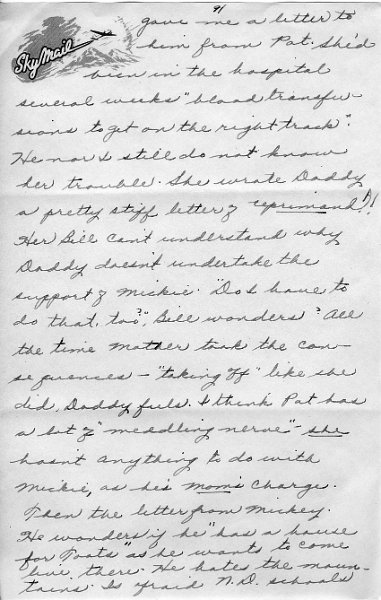 91
Sky Mail
gave me a letter to
him from Pat. She'd
been in the hospital
several weeks "blood transfu-
sions to get on the right track".
He nor I still do not know
her trouble. She wrote Daddy
a pretty stiff letter of reprimand!?!
Her Bill can't understand why
Daddy doesn't undertake the
support of Mickie. "Do I have to
do that, too?", Bill wonders? All
the time Mother took the con-
sequences - "taking off" like she
did, Daddy feels. I think Pat has
a lot of "meddling nerve" - she
hasn't anything to do with
Mickie, as he's Mom's charge.
Then the letter from Mickey.
He wonders if he "has a house
for Toots" as he wants to come
live there. He hates the moun-
tains. Is afraid N.D. schools